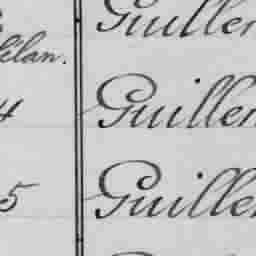 Guiller
élan.
4 Guiller
5 Guiller